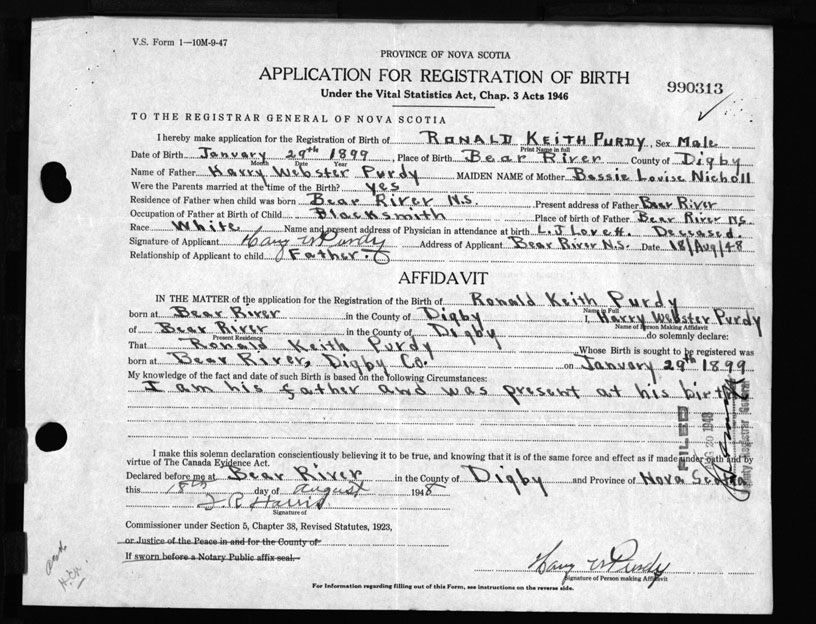 V.S. Form 1—10M-9-47
PROVINCE OF NOVA SCOTIA
APPLICATION FOR REGISTRATION OF BIRTH
990313
Under the Vital Statistics Act, Chap. 3 Acts 1946
TO THE REGISTRAR GENERAL OF NOVA SCOTIA
I hereby make application for the Registration of Birth of RONALD KEITH PURDY, Sex Male
Print Name in full
Date of Birth January 29th 1899, Place of Birth Bear River County of Digby
Month Date Year
Name of Father Harry Webster Purdy MAIDEN NAME of Mother Bessie Louise Nicholl
Were the Parents married at the time of the Birth? yes
Residence of Father when child was born Bear River N.S. Present address of Father Bear River
Occupation of Father at Birth of Child Blacksmith Place of birth of Father Bear River N.S.
Race White Name and present address of Physician in attendance at birth L.J Lovett. Deceased.
Signature of Applicant Harry W Purdy Address of Applicant Bear River N.S. Date 18/Aug/48
Relationship of Applicant to child Father.
AFFIDAVIT
IN THE MATTER of the application for the Registration of the Birth of Ronald Keith Purdy
Name in Full
born at Bear River in the County of Digby I, Harry Webster Purdy
Name of Person Making Affidavit
of Bear River in the County of Digby do solemnly declare:
Present Residence
That Ronald Keith Purdy Whose Birth is sought to be registered was
born at Bear River, Digby Co. on January 29th 1899
My knowledge of the fact and date of such Birth is based on the following Circumstances:
I am his father and was present at his birth
FILED
AUG 20 1948
Deputy Registrar General
I make this solemn declaration conscientiously believing it to be true, and knowing that it is of the same force and effect as if made under oath and by
virtue of The Canada Evidence Act.
Declared before me at Bear River in the County of Digby and Province of Nova Scotia
this 18th day of August 1948
J. R Harris
Signature of
Commissioner under Section 5, Chapter 38, Revised Statutes, 1923,
or Justice of the Peace in and for the County of
If sworn before a Notary Public affix seal.
Harry W Purdy
Signature of Person making Affidavit
For Information regarding filling out of this Form, see instructions on the reverse side.